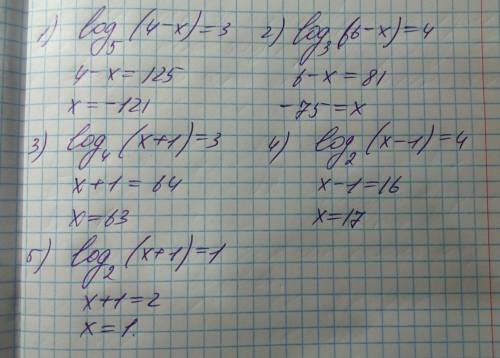 1) log₅ (4-x)=3
4-x=125
x=-121
2) log₃ (6-x)=4
6-x=81
-75=x
3) log₄ (x+1)=3
x+1=64
x=63
4) log₂ (x-1)=4
x-1=16
x=17
5) log₂ (x+1)=1
x+1=2
x=1.